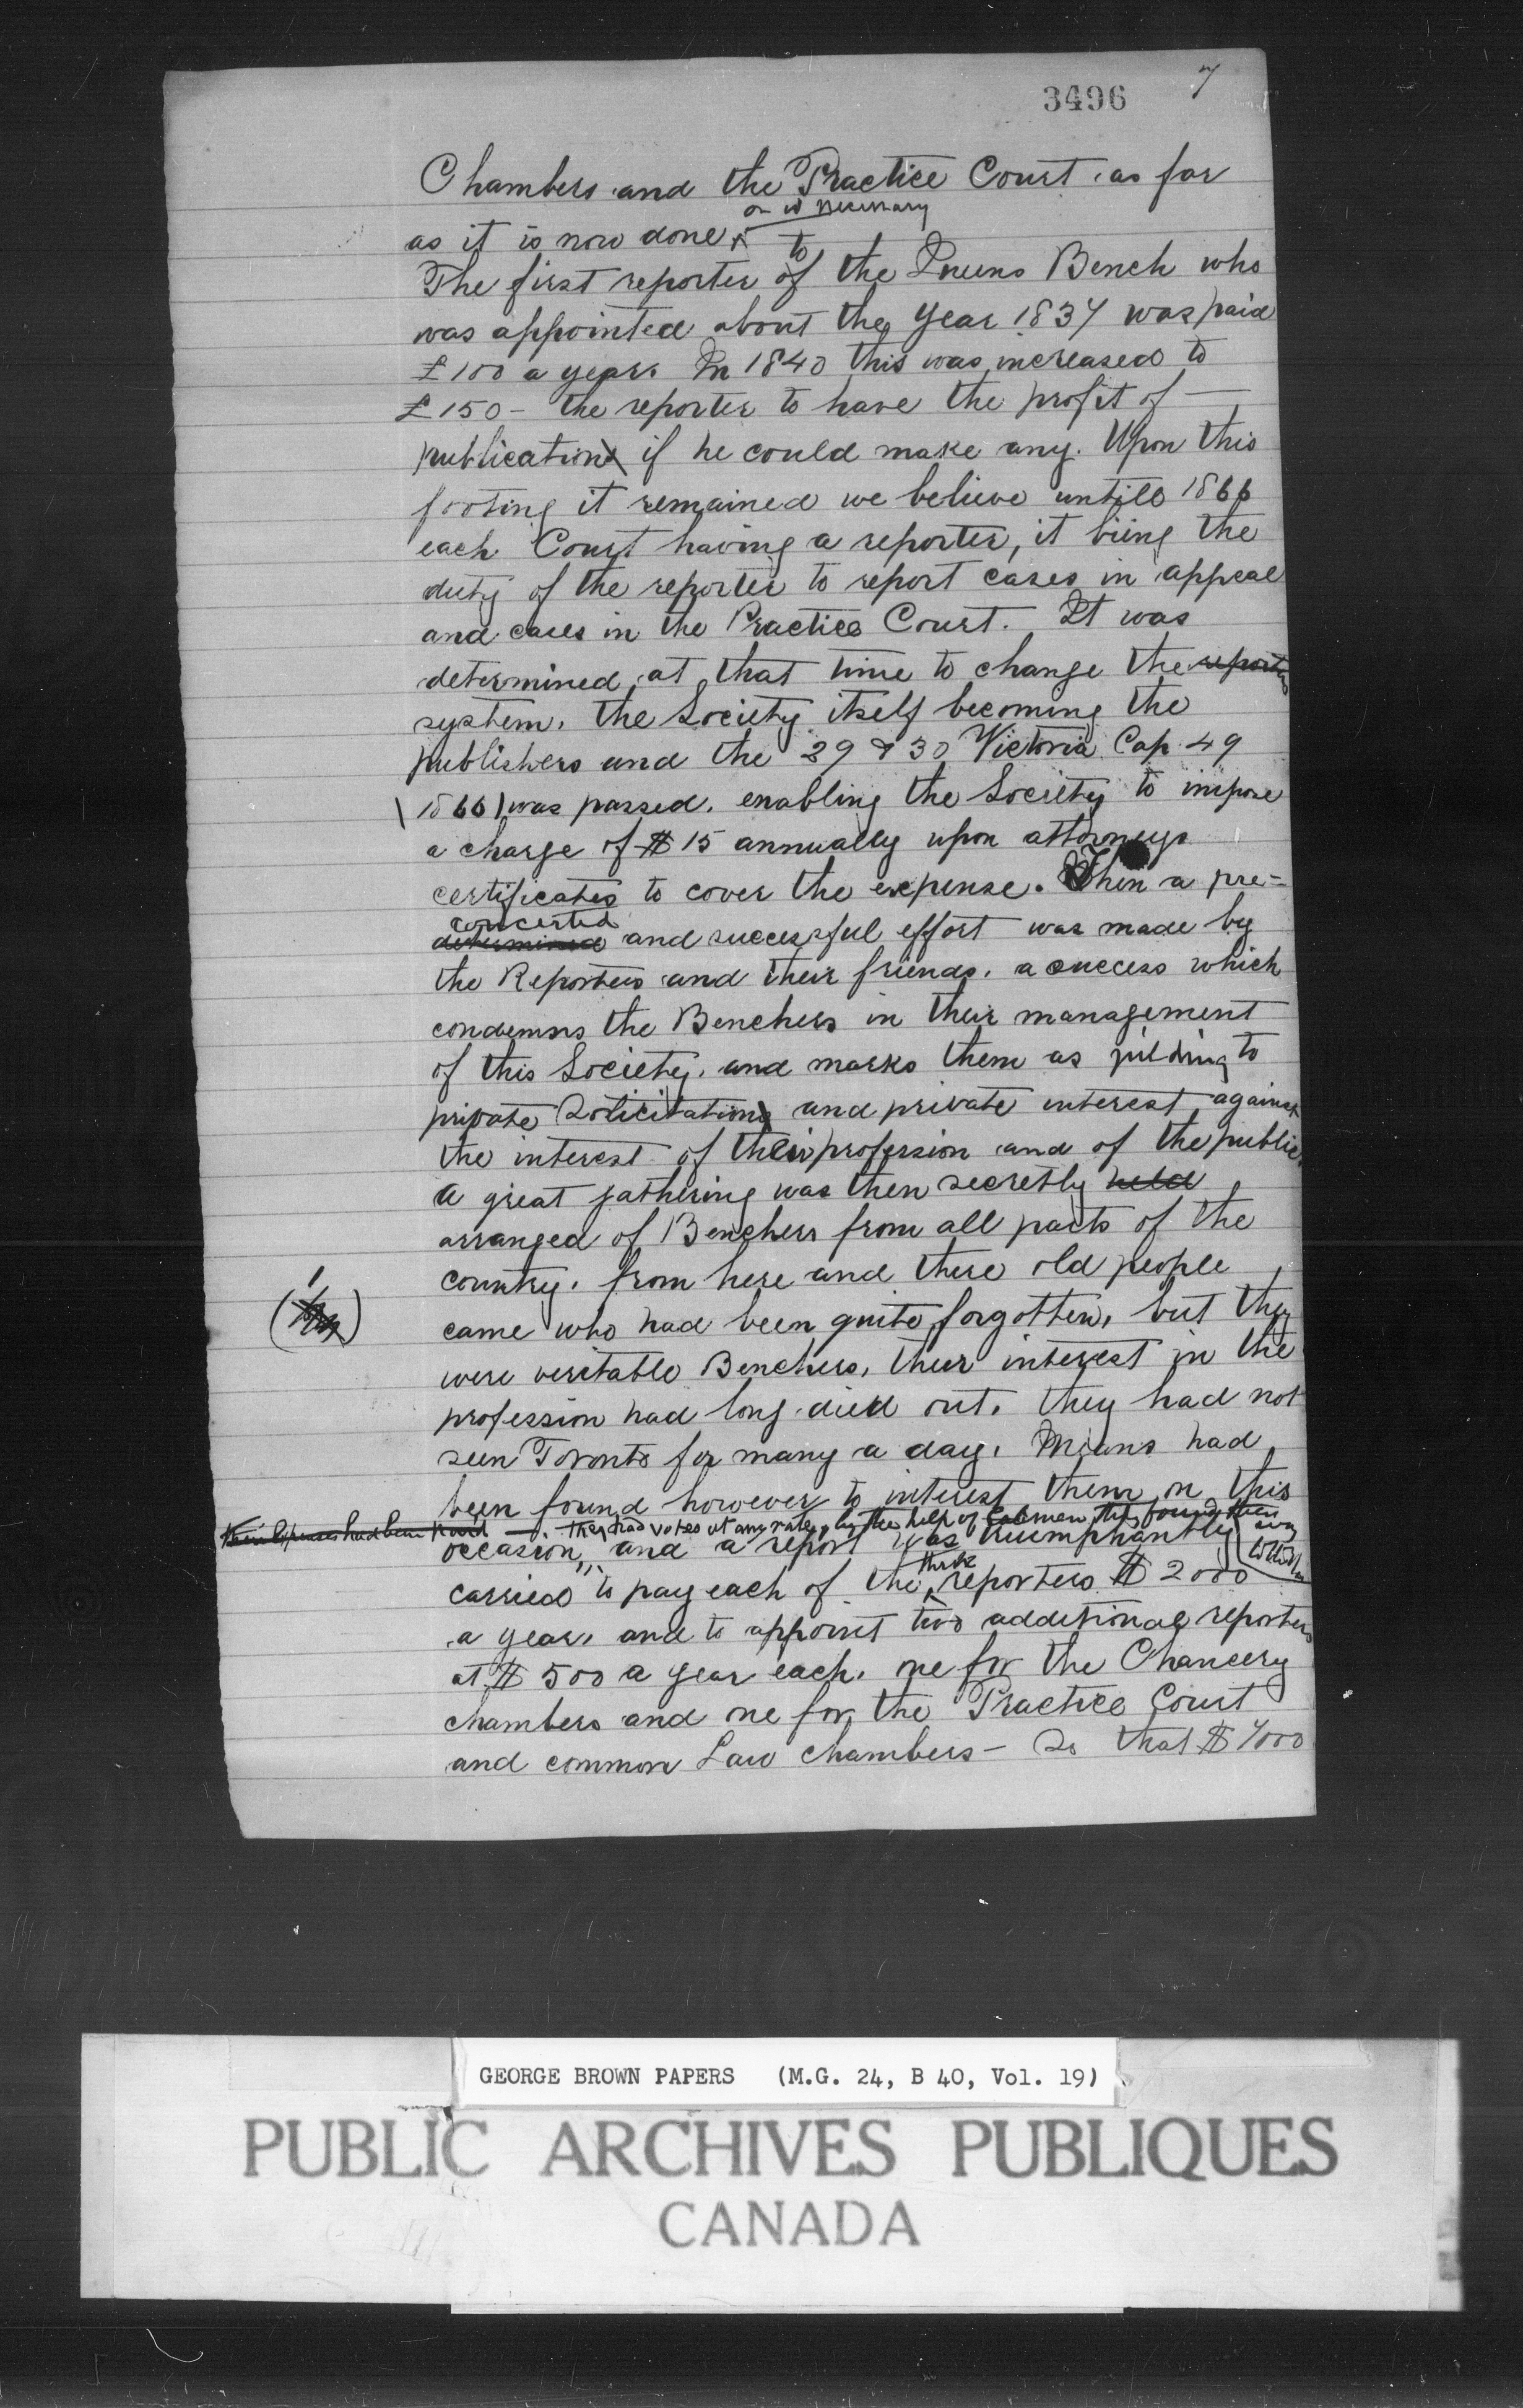 3496 7
Chambers and the Practice Court as far
or is necessary
as it is now done
to
The first reporter of the Queens Bench who
was appointed about the year 1837 was paid
£100 a year. In 1840 this was increased to
£150 - the reporter to have the profit of —
publication if he could make any. Upon this
footing it remained we believe untill 1866
each Court having a reporter, it being the
duty of the reporter to report cases in appeal
and cases in the Practice Court. It was
determined at that time to change the
system, the Society itself becoming the
publishers and the 29 & 30 Victoria Cap. 49
(1866) was passed, enabling the Society to impose
a charge of $15 annually upon attorneys
certificates to cover the expense. Then a pre=
concerted
determined and successful effort was made by
the Reporters and their friends, a success which
condemns the Benchers in their management
of this Society, and marks them as yielding to
private Solicitation and private interest against
the interest of their profession and of the public
A great gathering was then secretly held
arranged of Benchers from all parts of the
country, from here and there old people
came who had been quite forgotten, but they
were veritable Benchers, their interest in the
profession had long died out, they had not
seen Toronto for many a day, Means had
been found however to interest them on this
Their expenses had been paid — they had votes at any rate, by the help of Cabmen they found their way
occasion, and a report was triumphantly
to the Hall
three
carried to pay each of the reporters $2000
a year, and to appoint two additional reporters
at $500 a year each, one for the Chancery
chambers and one for the Practice Court
and common Law chambers - So that $7000
GEORGE BROWN PAPERS (M.G. 24, B 40, Vol. 19)
PUBLIC ARCHIVES PUBLIQUES
CANADA